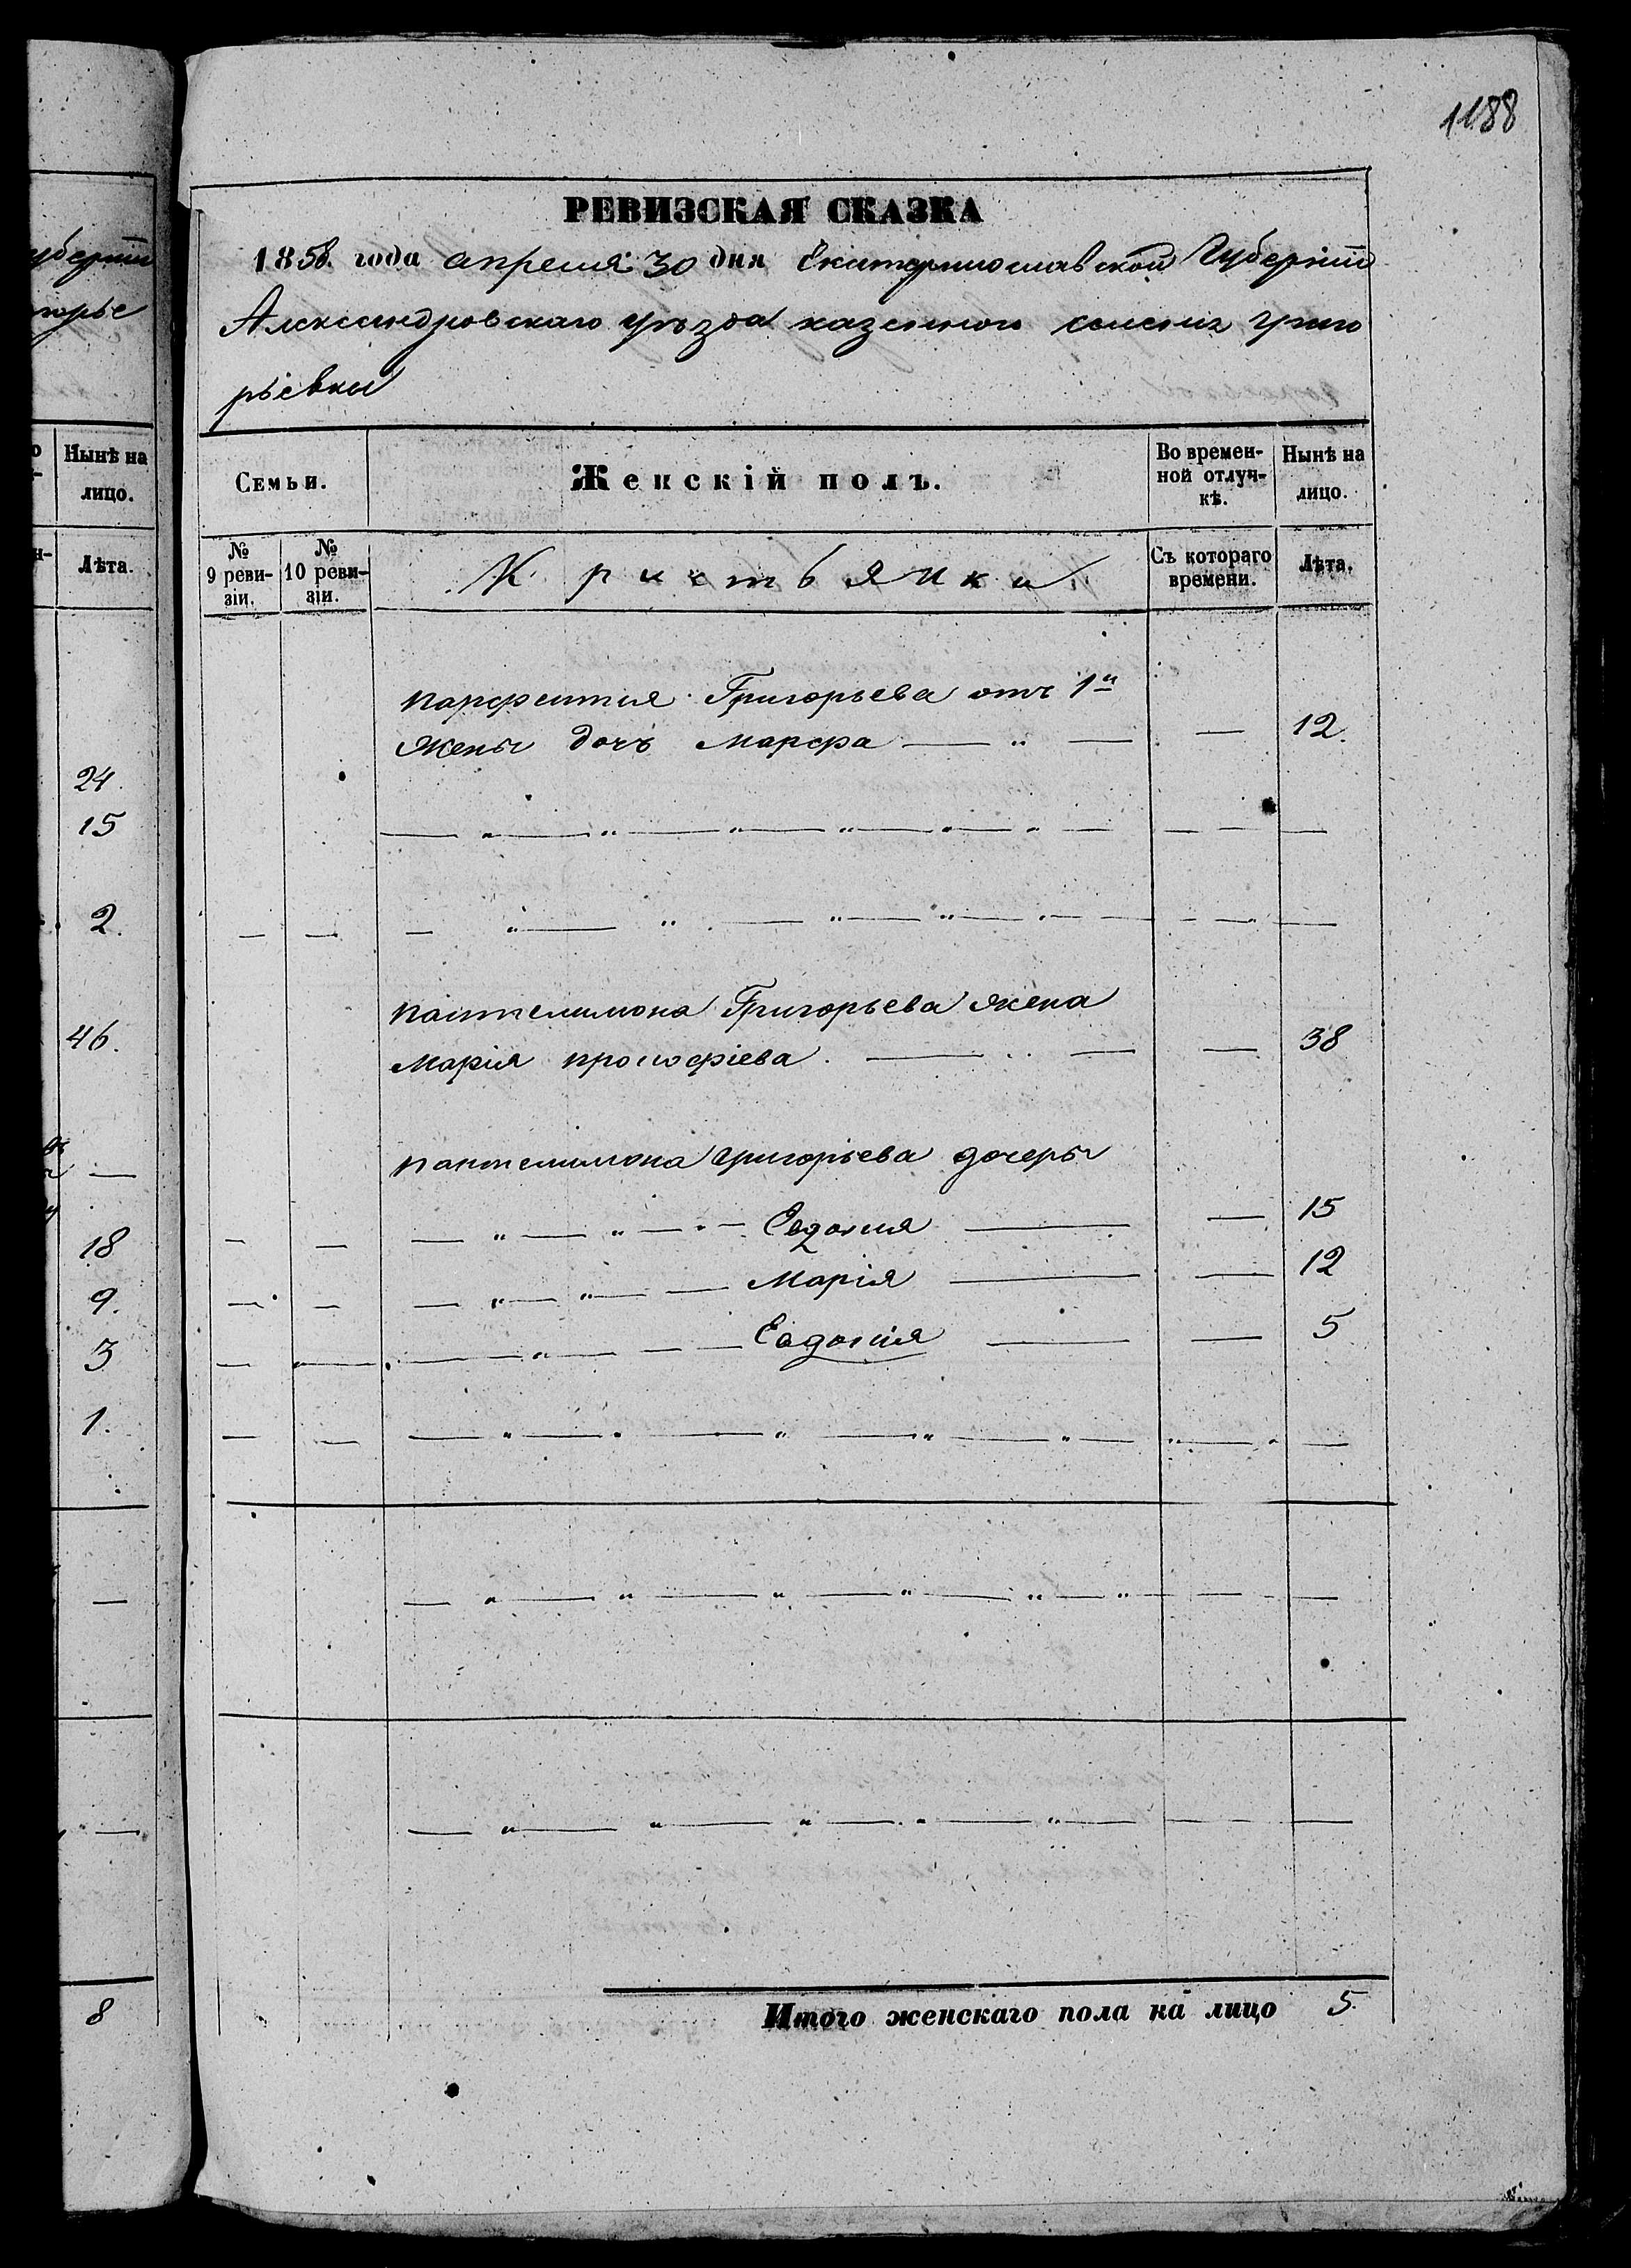 1188
РЕВИЗСКАЯ СКАЗКА
1858 года апреля 30 дня Екатеринославской Губерніи
Александровскаго уѣзда казенного селенія Григо
рьевки
Семьи.
Женскій полъ.
Во времен-
ной отлуч-
кѣ.
Нынѣ на
лицо.
№
9 реви-
зіи.
№
10 реви-
зіи.
Кристьянки
Съ котораго
времени.
Лѣта.
Парфентия Григорьева отъ 1й
жены дочъ Марфа — " — — 12.
Пантелимона Григорьева жена
Марія Прокофіева. — — 38
Пантелимона Григорьева дочеры
— " — " — " — Евдокия — — 15
— " — " — — Марія — — 12
— " — — — Евдокія — — 5
Итого женскаго пола на лицо 5.
уберніи
горье
Нынѣ на
лицо.
Лѣта.
24.
15
2.
46.
—
18
9.
3
1.
—
—
8